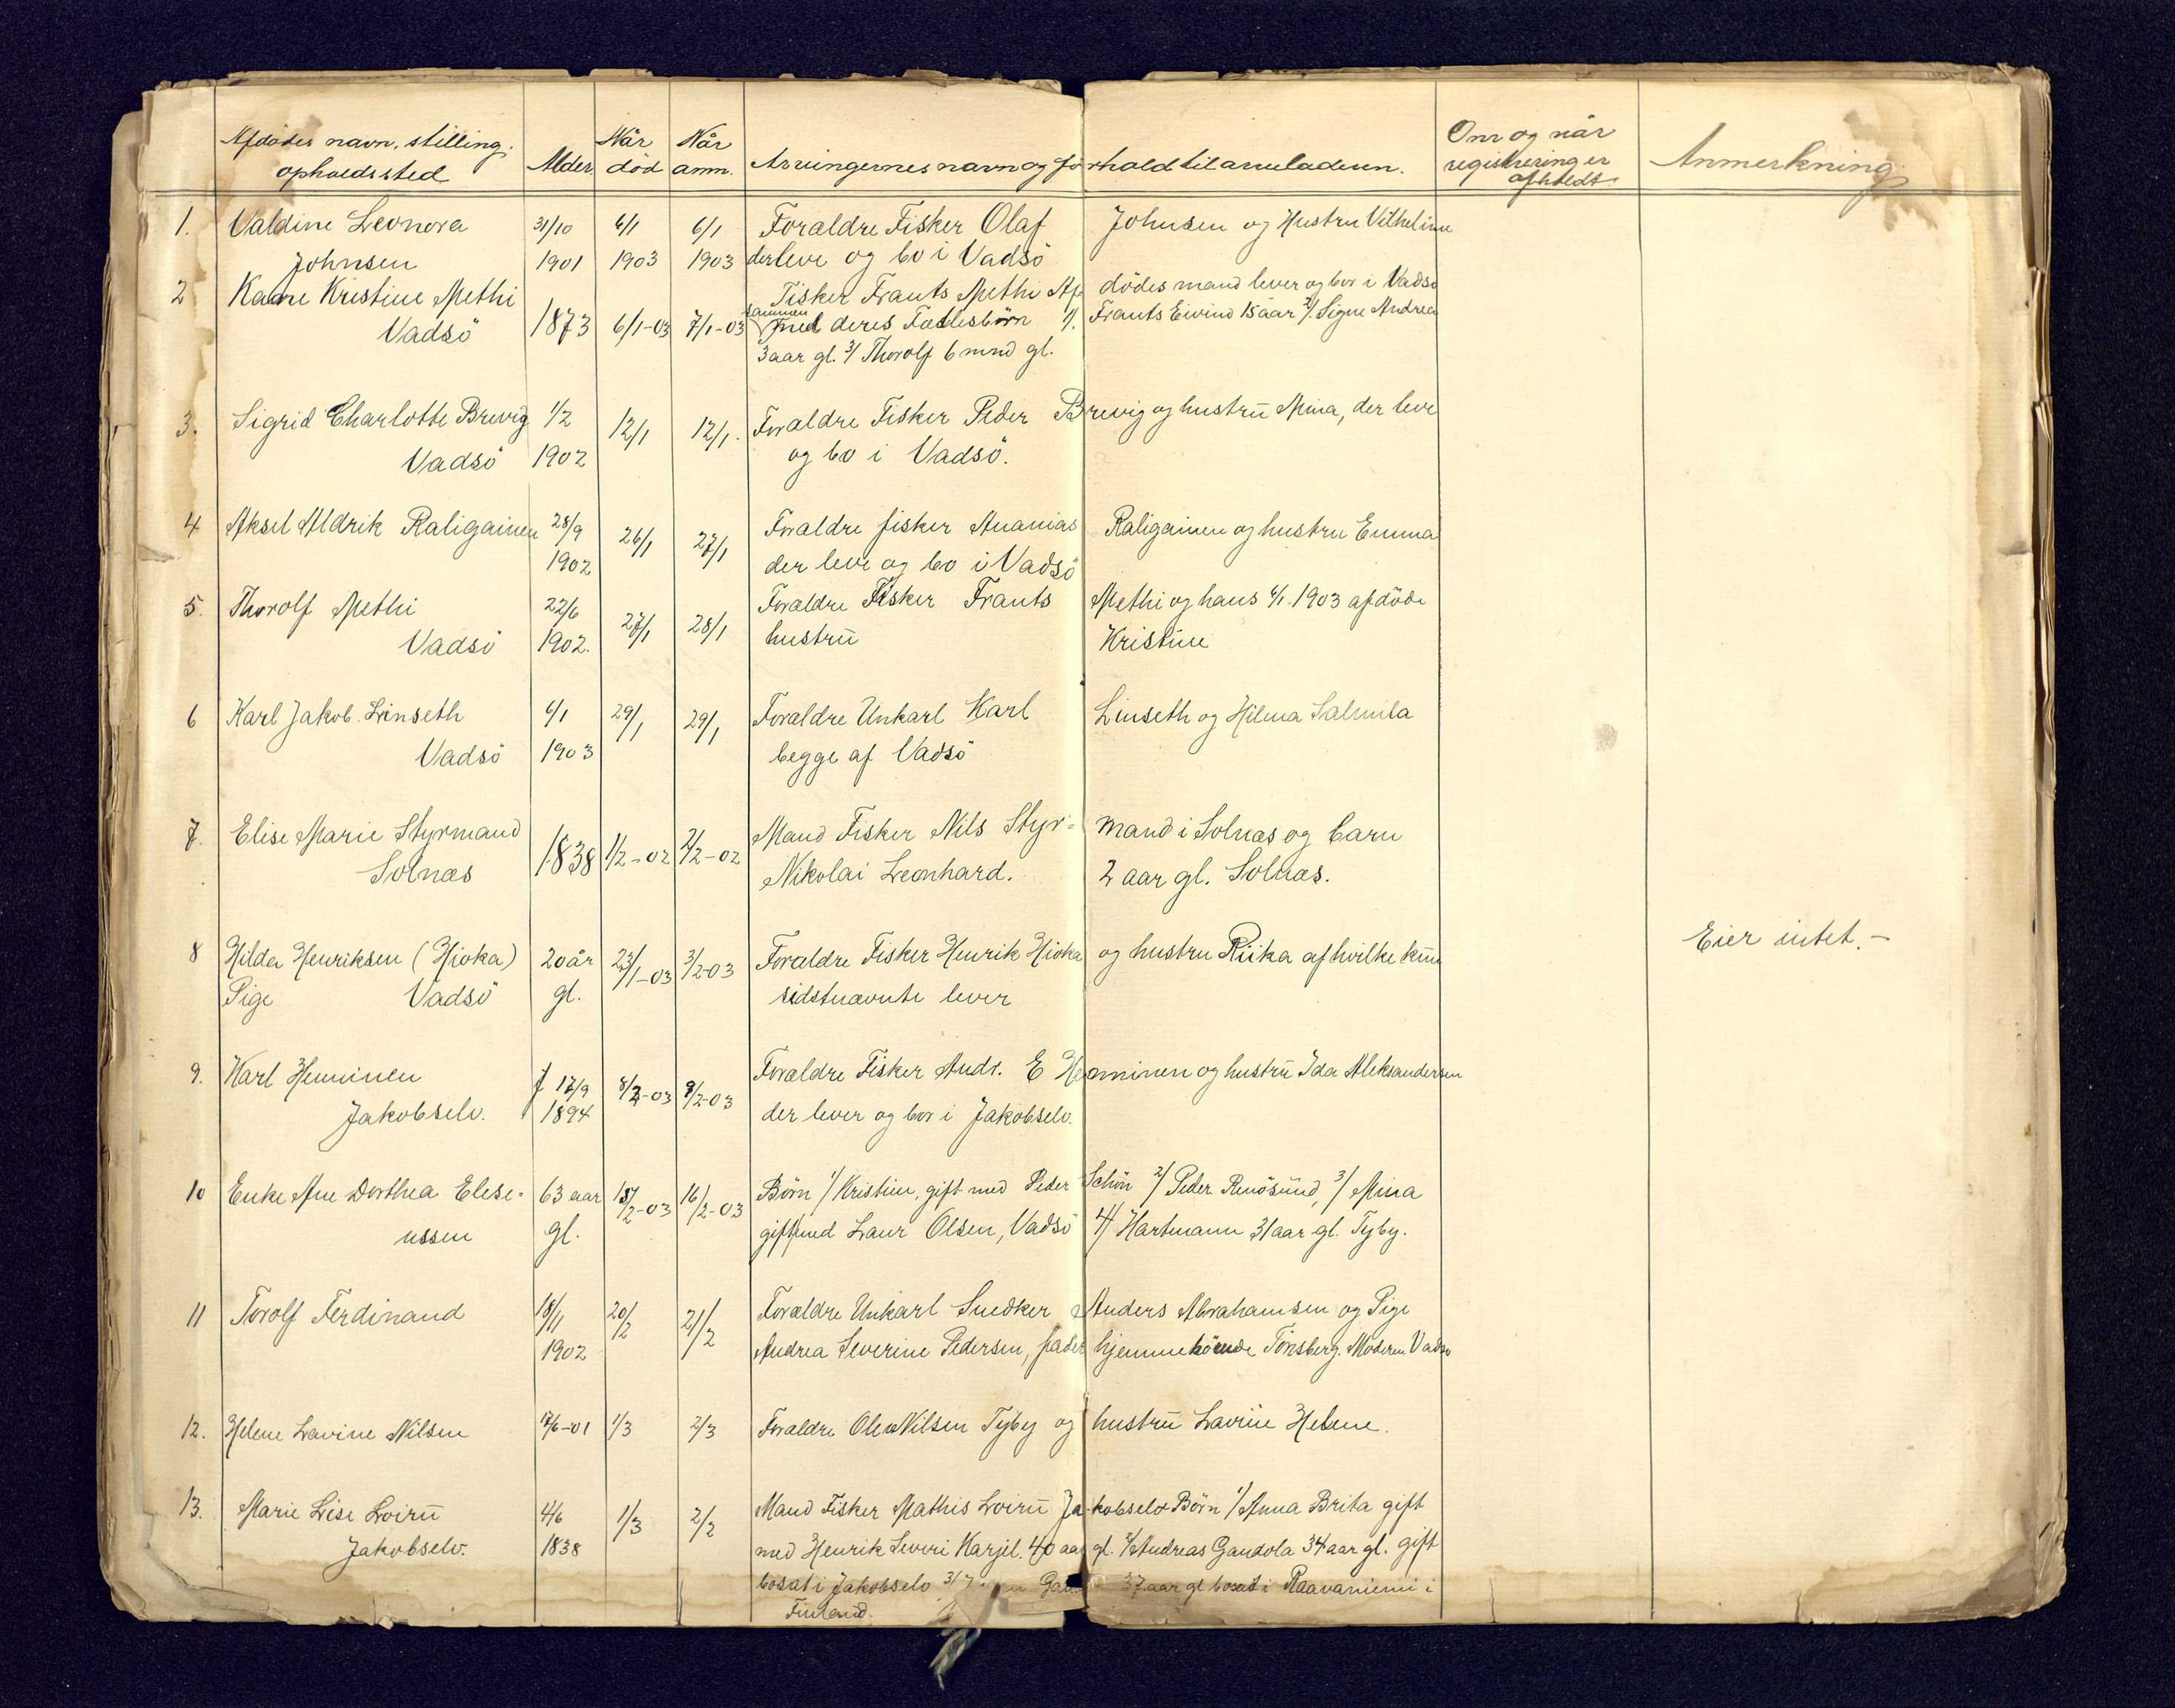 Afdödes navn, stilling. opholdssted
Alder.
Når död
Når anm.
Arvingernes navn og forhold til arveladeren.
Om og når registrering er afholdt
Anmerkning
1. Valdine Leonora 31/10 6/1 6/1 Forældre Fisker Olaf Johnsen og Hustru Vilhelmine
Johnsen 1901 1903 1903 der leve og bo i Vadsö
2 Kristine Methi Fisker Frants Methi Af- dödes mand lever og bor i Vadsö
Vadsö 1873 6/1-03 7/1-03 sammen med deres Fællesbörn 1/. Frants Eivind 15 aar 2/. Signe Andrea
3 aar gl. 3/ Thorolf 6 mnd gl.
3. Sigrid Charlotte Brevig 1/2 12/1 12/1. Forældre Fisker Peder Brevig og hustru Mina, der leve
Vadsö 1902 og bo i Vadsö.
4 Aksel Aldrik Raligainen 28/9 26/1 27/1 Forældre fisker Ananias Raligainen og hustru Emma
1902 der leve og bo i Vadsö
5. Thorolf Methi 22/6 27/1 28/1 Forældre Fisker Frants Methi og hans 6/1 1903 afdöde
Vadsö 1902. hustru Kristine
6 Karl Jakob Linseth 6/1 29/1 29/1 Forældre Unkarl Karl Linseth og Hilma Salmila
Vadsö 1903 begge af Vadsö
7. Elise Marie Styrmand 1838 1/2-02 2/2-02 Mand Fisker Nils Styr= mand i Solnæs og barn
Solnæs Nikolai Leonhard. 2 aar gl. Solnæs.
8 Hilda Henriksen (Hioka) 20 år 23/1-03 3/2-03 Forældre Fisker Henrik Hioka og hustru Riika af hvilke kun Eier intet.-
Pige Vadsö gl. sidstnævnte lever
9. Karl Henninen f 17/9 8/2-03 9/2-03 Forældre Fisker Andr. E Henninen og hustru Ida Aleksandersen
Jakobselv. 1894 der lever og bor i Jakobselv.
10 Enke Ane Dorthea Elise- 63 aar 15/2-03 16/2-03 Börn 1/ Kristine, gift med Peder Schön 2/ Peder Renösund, 3/ Mina
ussen gl. gift med Laur Olsen, Vadsö 4/ Hartmann 31 aar gl. Tyby.
11 Torolf Ferdinand 18/11 20/2 21/2 Forældre Unkarl Snedker Anders Abrahamsen og Pige
1902 Andrea Severine Pedersen, fader hjemmehörende Tönsberg. Moderen Vadsö
12. Helene Lavine Nilsen 17/6-01 1/3 2/3 Forældre Ole Nilsen Tyby og hustru Lavine Helene.
13. Marie Lise Loiru 4/6 1/3 2/2 Mand Fisker Mathis Loiru Jakobselv Börn 1/ Anna Brita gift
Jakobselv. 1838 med Henrik Severi Karjel. 40 aar gl. 2/ Andreas Gandola 34 aar gl. gift
bosat i Jakobselv 3/ 37 aar gl bosat i Raavaniemi i
Finland.